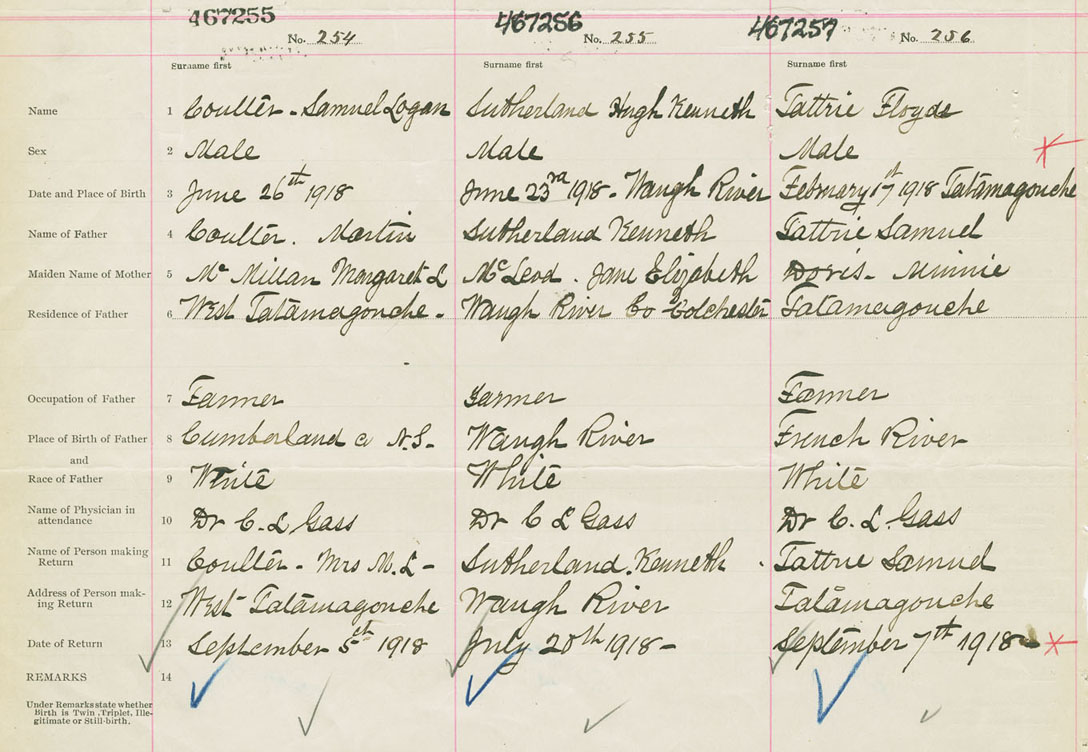 467255 467256 467257
No. 254 No. 255 No. 256
Surname first Surname first Surname first
Name 1 Coulter - Samuel Logan Sutherland Hugh Kenneth Tattrie Floyde
Sex 2 Male Male Male
Date and Place of Birth 3 June 26th 1918 June 23rd 1918 - Waugh River February 1918 Tatamagouche
Name of Father 4 Coulter. Martin Sutherland Kenneth Tattrie Samuel
Maiden Name of Mother 5 Mc Millan Margaret L McLeod. Jane Elizabeth Doris - Minnie
Residence of Father 6 West Tatamagouche - Waugh River Co Colchester Tatamagouche
Occupation of Father 7 Farmer Farmer Farmer
Place of Birth of Father 8 Cumberland Co N.S- Waugh River French River
and
Race of Father 9 White White White
Name of Physician in
attendance 10 Dr C. L Gass Dr C L Gass Dr C. L. Gass
Name of Person making
Return 11 Coulter - Mrs M. L - Sutherland. Kenneth Tattrie Samuel
Address of Person mak-
ing Return 12 West Tatamagouche Waugh River Tatamagouche
Date of Return 13 September 5th 1918 July 20th 1918 - September 7th 1918
REMARKS 14
Under Remarks state whether
Birth is Twin, Triplet, Ille-
gitimate or Still-birth.